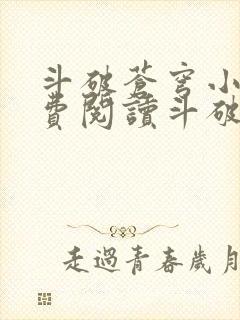 斗破蒼穹小
費閱讀斗破
走過青春歲月